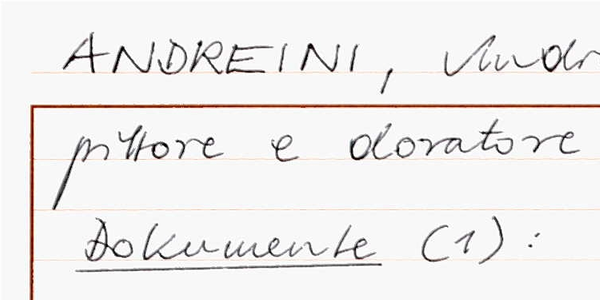 ANDREINI,
pittore e doratore
Dokumente (1):